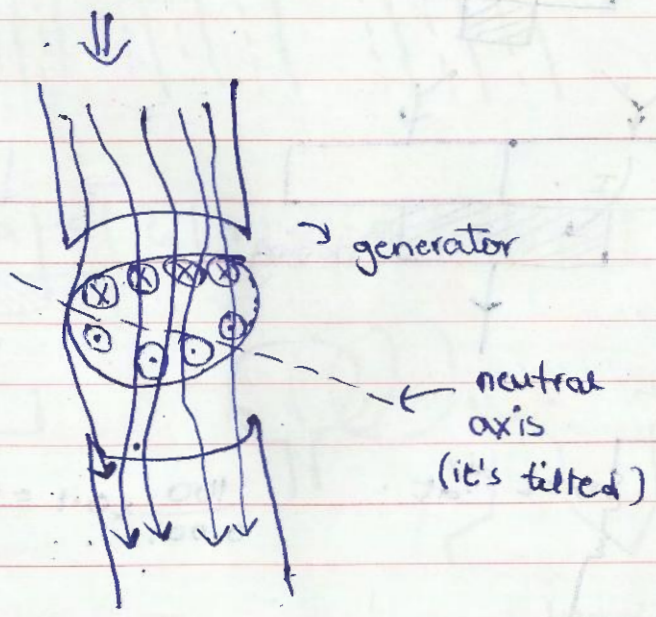 generator
neutral
axis
(it's tilted)